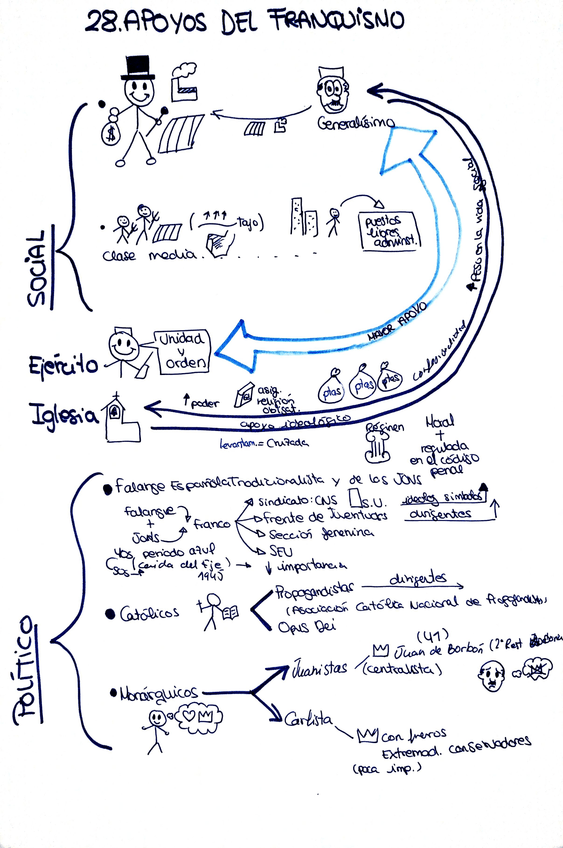 28. APOYOS DEL FRANQUISMO
$
Generalísimo
SOCIAL
(↑↑↑ tajo)
clase media . . . . . . .
puestos
libres
administ.
↑ Peso en la vida social
MAYOR APOYO
Ejército
Unidad
y
orden
confesionalidad
Iglesia
↑ poder
asig.
religión
obligat.
ptas
ptas
ptas
apoyo ideológico
levantam. = Cruzada
Régimen
Moral
+
regulada
en el código
penal
POLÍTICO
Falange Española Tradicionalista y de las JONS
Falange
+
JONS
Franco
Sindicato: CNS
S.U.
ideolog simbolos
Frente de Juventudes
dirigentes
Sección femenina
SEU
↓ importancia
40s periodo azul
50s → (caída del Eje
1945)
Católicos
Propagandistas
dirigentes
(Asociación Católica Nacional de Propagandistas)
Opus Dei
Monárquicos
Juanistas
(centralista)
(41)
Juan de Borbón (2º Rest Borbónica
Carlista
con fueros
Extremad. conservadores
(poca imp.)